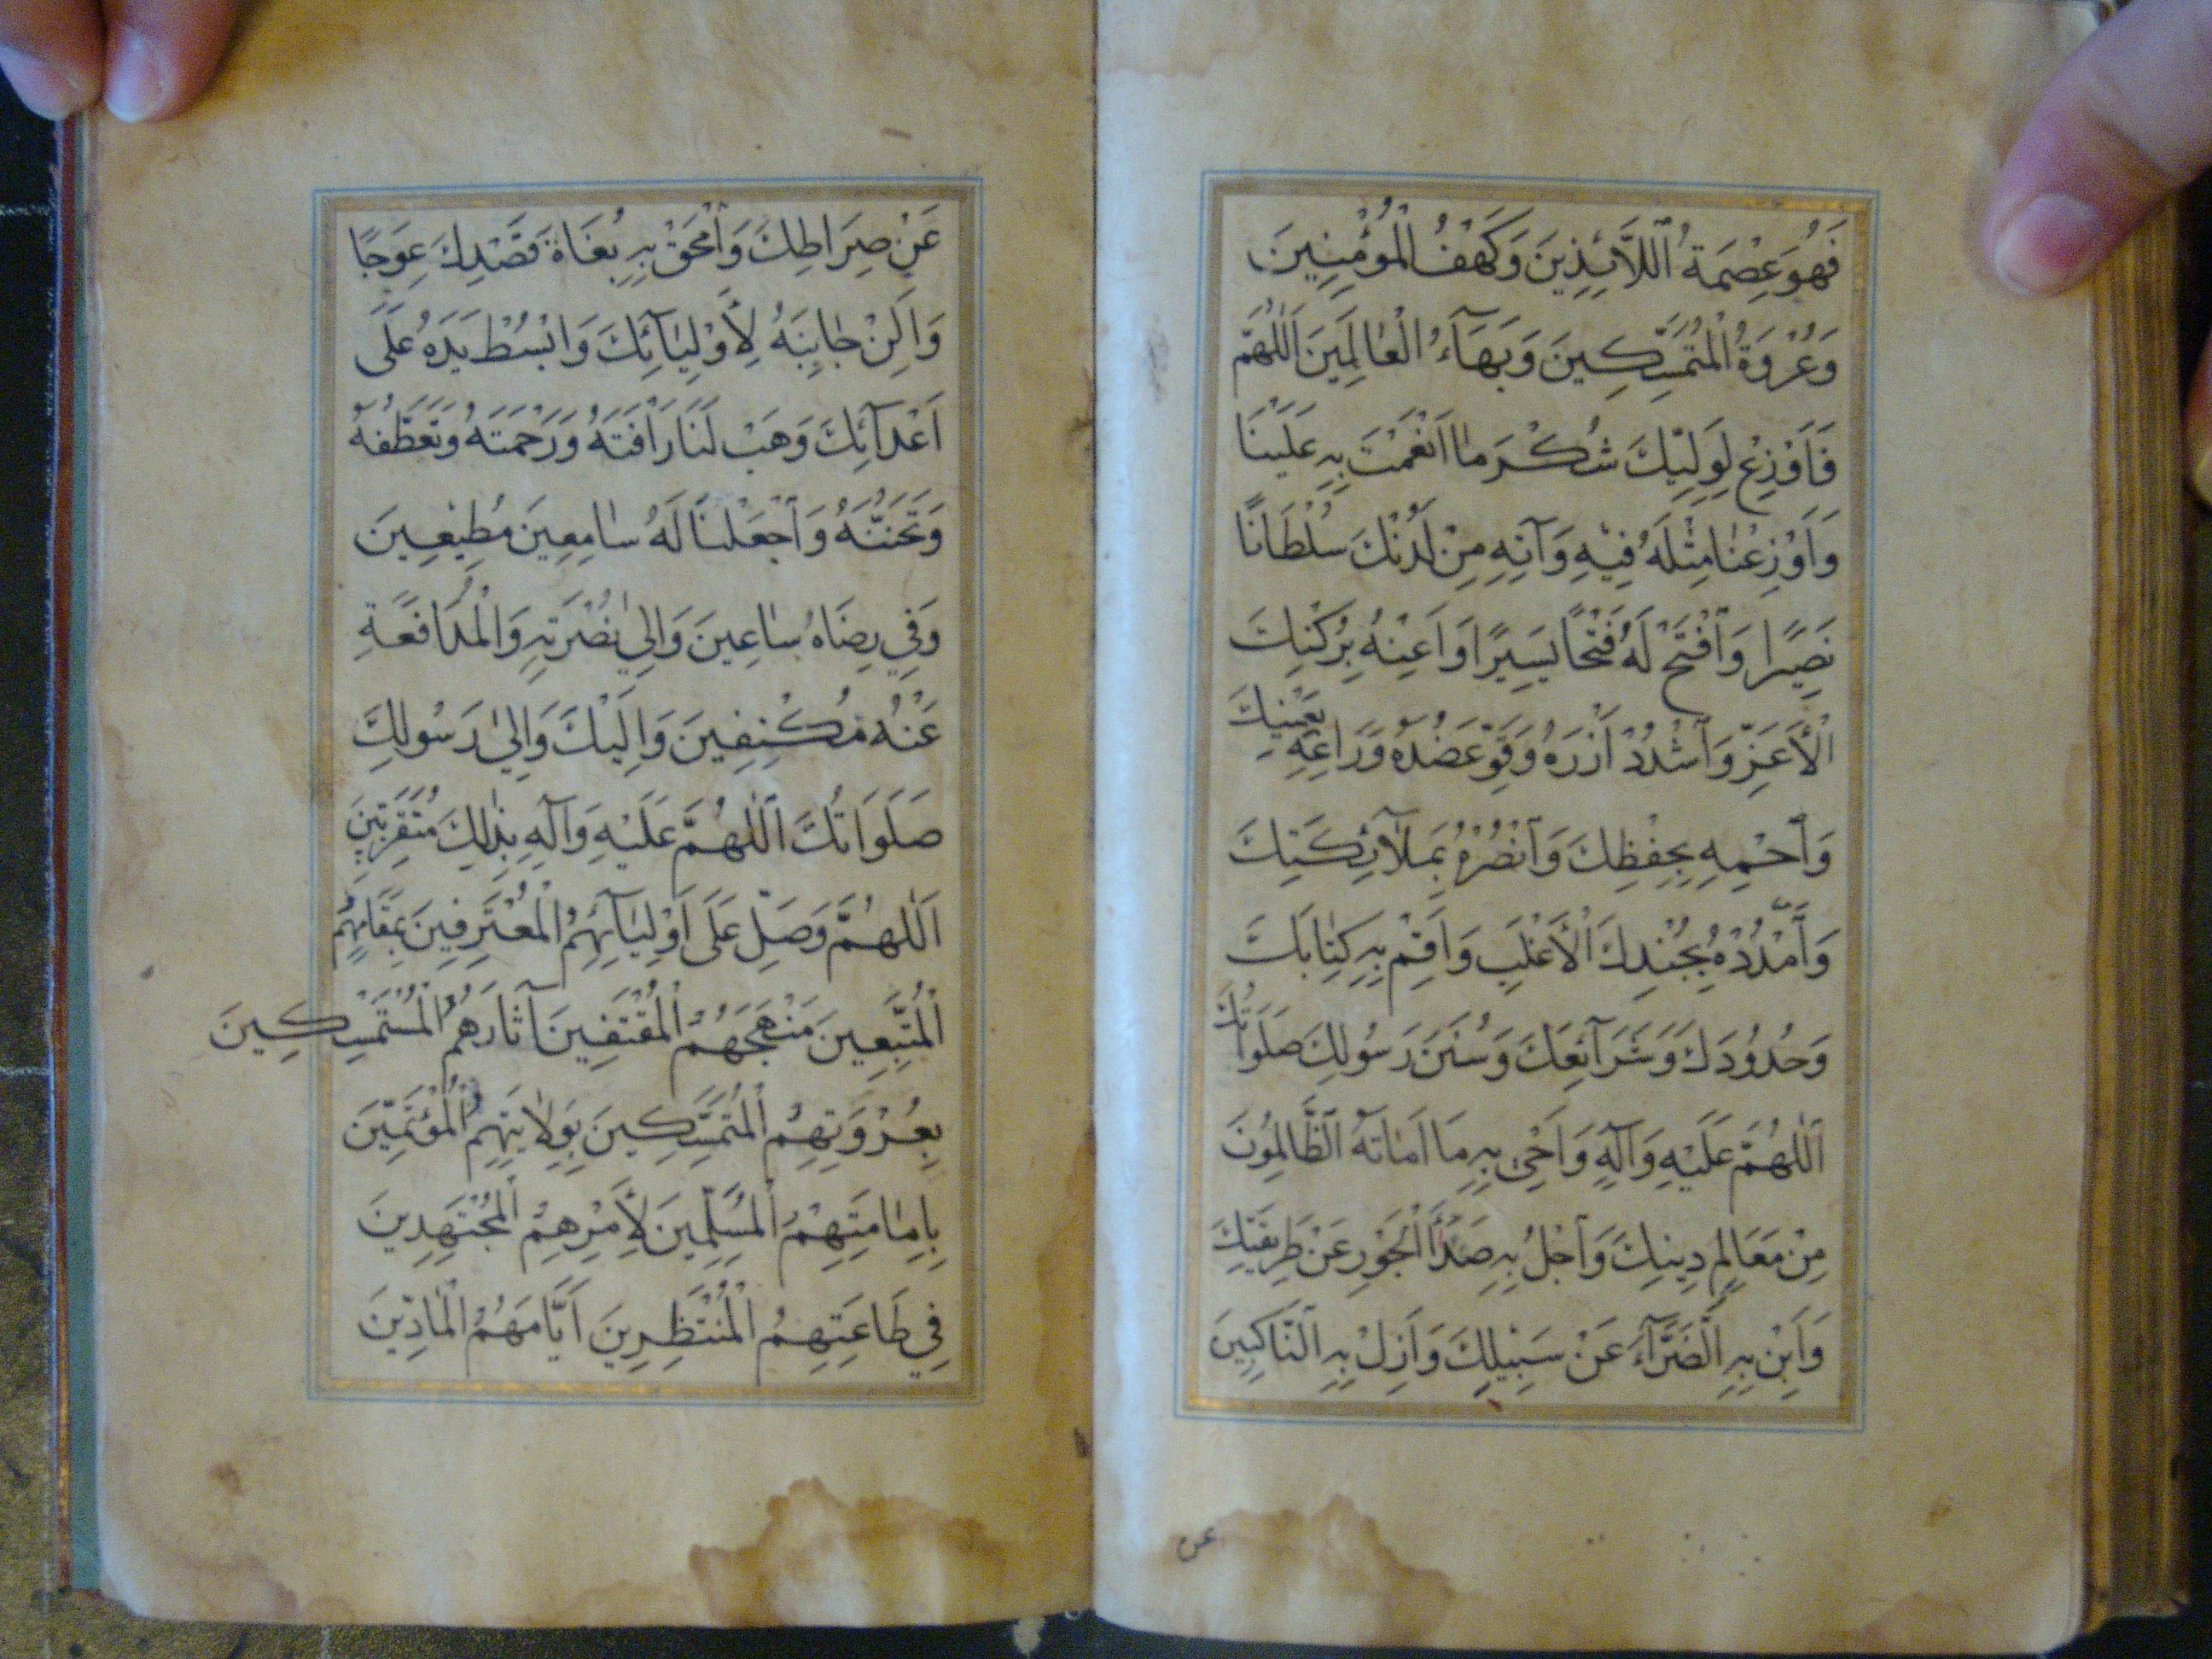 فَهُوَ عِصْمَةُ اللَّائِذِينَ وَكَهْفُ الْمُؤْمِنِينَ
وَعُرْوَةُ الْمُتَمَسِّكِينَ وَبَهَآءُ الْعَالَمِينَ اَللّٰهُمَّ
فَاَوْزِعْ لِوَلِيِّكَ شُكْرَ مَا اَنْعَمْتَ بِهِ عَلَيْنَا
وَاَوْزِعْنَا مِثْلَهُ فِيْهِ وَآتِهِ مِنْ لَدُنْكَ سُلْطَانًا
نَصِيًرا وَافْتَحْ لَهُ فَتْحًا يَسِيرًا وَاَعِنْهُ بِرُكْنِكَ
الْأَعَزِّ وَاشْدُدْ اَزْرَهُ وَقَوِّ عَضُدَهُ وَرَاعِهِ بِعَيْنِكَ
وَاحْمِهِ بِحِفْظِكَ وَانْصُرْهُ بِمَلَآئِكَتِكَ
وَامْدُدْهُ بِجُنْدِكَ الْأَغْلَبِ وَاَقِمْ بِهِ كِتَابَكَ
وَحُدُودَكَ وَشَرَآئِعَكَ وَسُنَنَ رَسُولِكَ صَلَوَاتُكَ
اَللّٰهُمَّ عَلَيْهِ وَآلِهِ وَاَحْيِ بِهِ مَا اَمَاتَهُ الظَّالِمُونَ
مِنْ مَعَالِمِ دِينِكَ وَاجْلُ بِهِ صَدَأَ الْجَوْرِ عَنْ طَرِيقَتِكَ
وَاَبِنْ بِهِ الضَّرَّآءَ عَنْ سَبِيْلِكَ وَاَزِلْ بِهِ النَّاكِبِينَ
عن
عَنْ صِرَاطِكَ وَامْحَقْ بِهِ بُغَاةَ قَصْدِكَ عِوَجًا
وَاَلِنْ جَانِبَهُ لِأَوْلِيَآئِكَ وَابْسُطْ يَدَهُ عَلَى
اَعْدَآئِكَ وَهَبْ لَنَا رَاْفَتَهُ وَرَحْمَتَهُ وَتَعَطُّفَهُ
وَتَحَنُّنَهُ وَاجْعَلْنَا لَهُ سَامِعِينَ مُطِيعِينَ
وَفِي رِضَاهُ سَاعِينَ وَاِلٰى نُصْرَتِهِ وَالْمُدَافَعَةِ
عَنْهُ مُكْنِفِينَ وَاِلَيْكَ وَاِلٰى رَسُولِكَ
صَلَوَاتُكَ اَللّٰهُمَّ عَلَيْهِ وَآلِهِ بِذٰلِكَ مُتَقَرِّبِينَ
اَللّٰهُمَّ وَصَلِّ عَلَى اَوْلِيَآئِهِمُ الْمُعْتَرِفِينَ بِمَقَامِهِمُ
الْمُتَّبِعِينَ مَنْهَجَهُمُ الْمُقْتَفِينَ آثَارَهُمُ الْمُسْتَمْسِكِينَ
بِعُرْوَتِهِمُ الْمُتَمَسِّكِينَ بِوَلَايَتِهِمُ الْمُؤْتَمِّينَ
بِاِمَامَتِهِمُ الْمُسَلِّمِينَ لِأَمْرِهِمُ الْمُجْتَهِدِينَ
فِي طَاعَتِهِمُ الْمُنْتَظِرِينَ اَيَّامَهُمُ الْمَادِّينَ